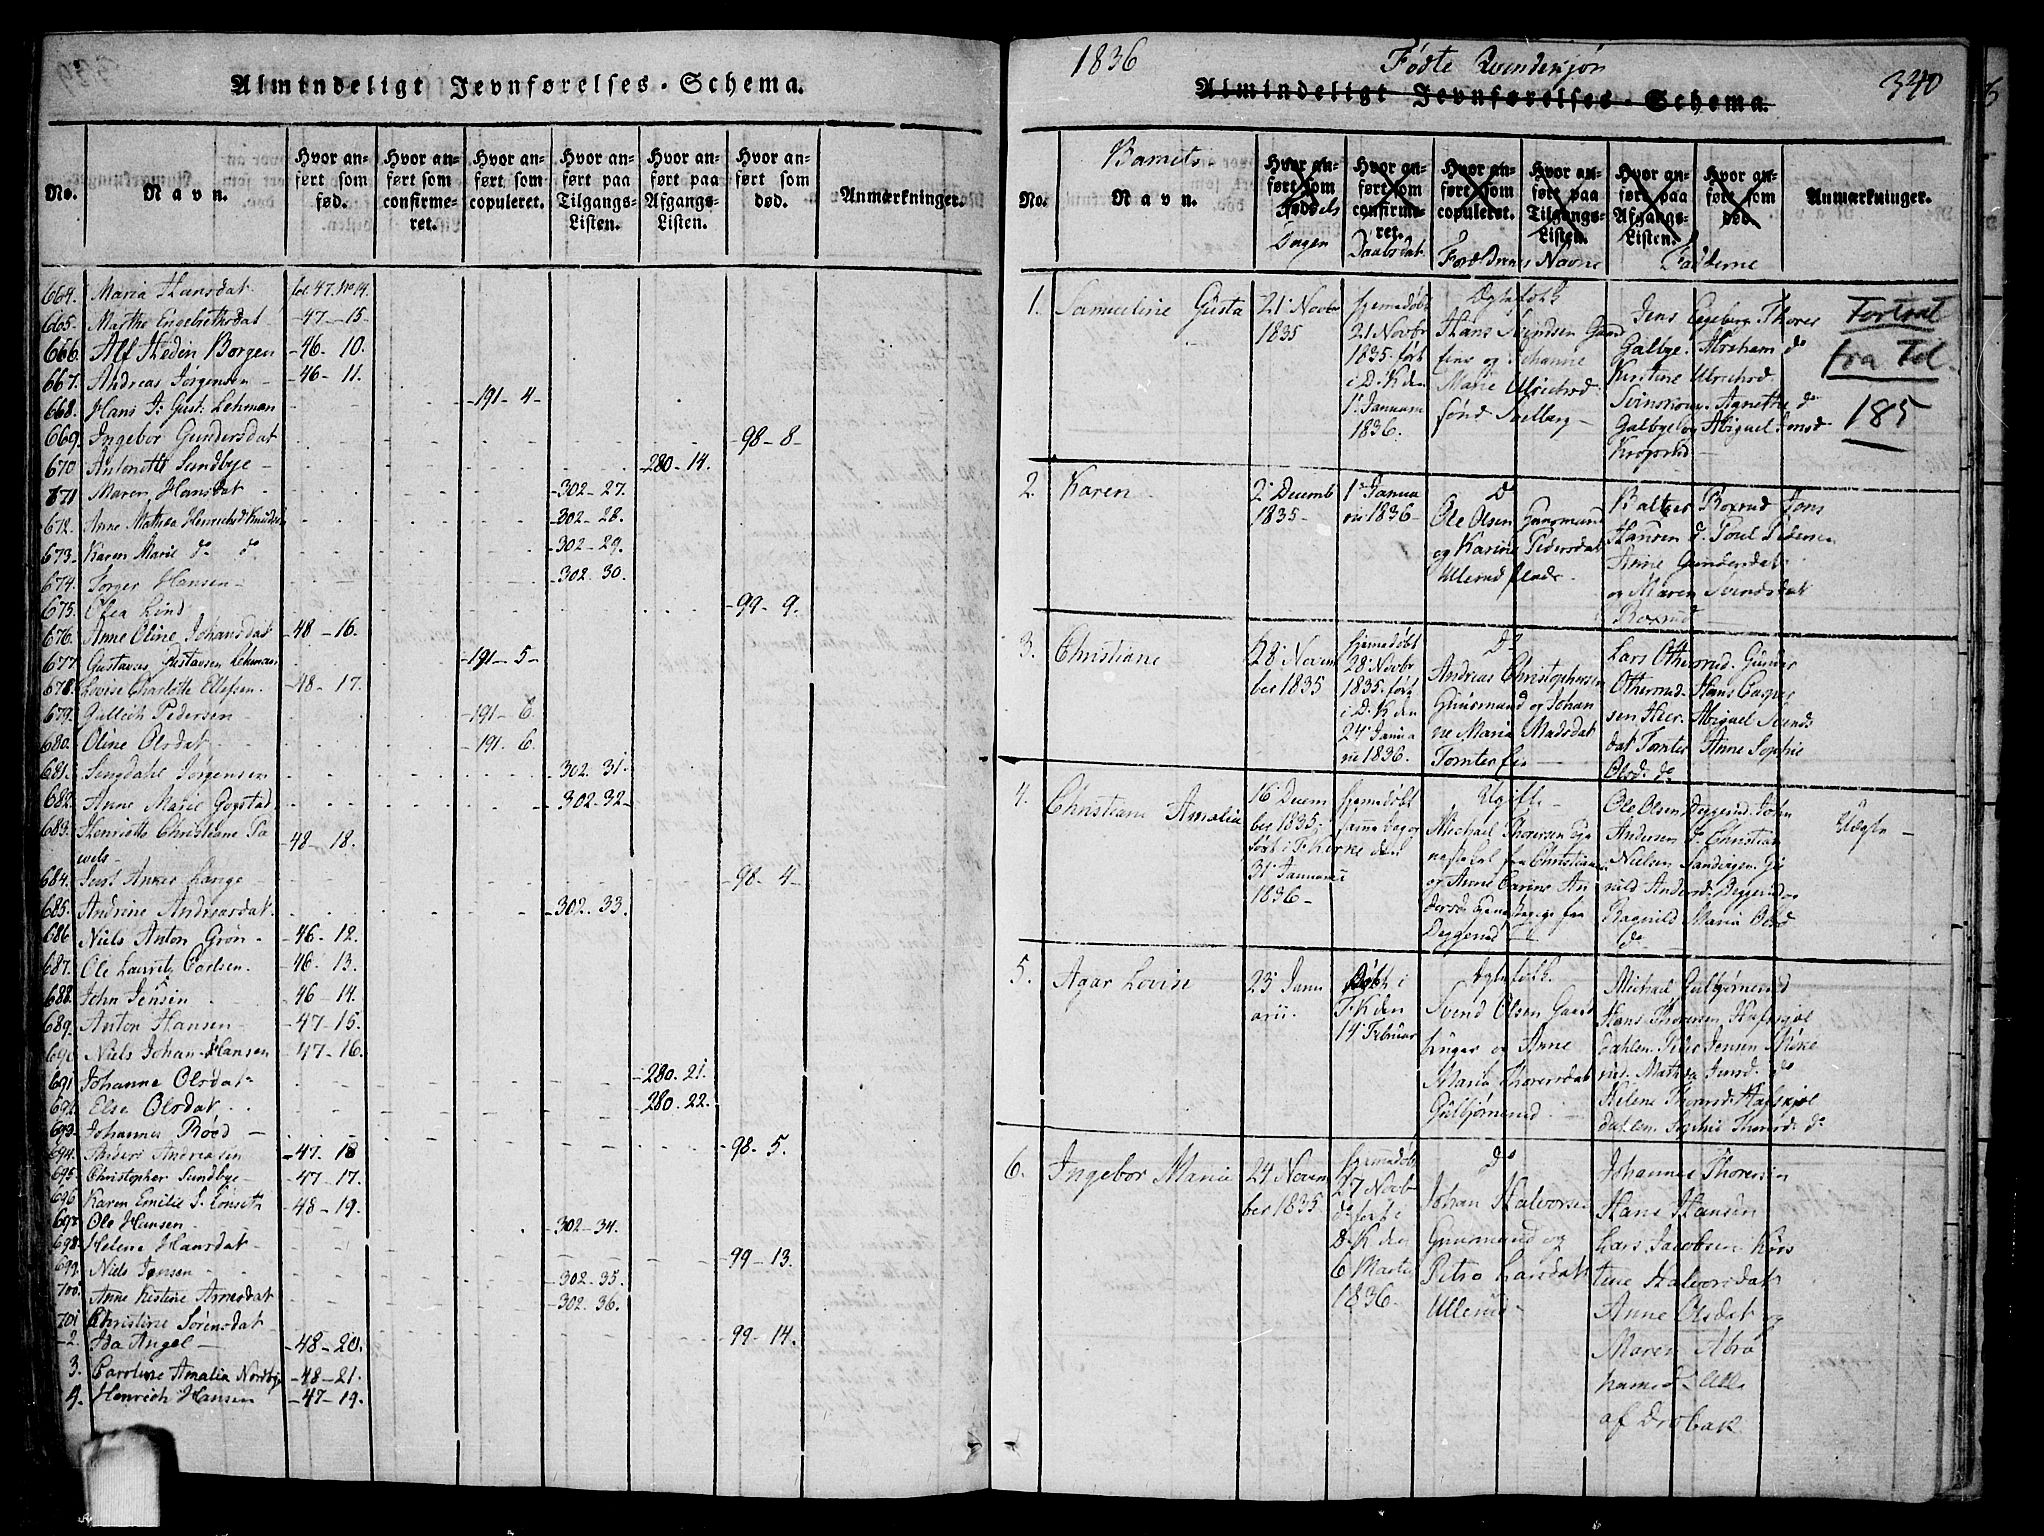 Almindeligt Jevnførelses-Schema.
No.
Navn.
Hvor anført som fød.
Hvor anført som confirmeret.
Hvor anført som copuleret.
Hvor anført paa Tilgangs-Listen.
Hvor anført paa Afgangs-Listen.
Hvor anført som død.
Anmærkninger.
664. Maria Hansdat fol. 47. No 14.
665. Marthe Engebrethsdat -47-15.
666. Alf Hedin Borgen -46-10.
667. Andreas Jørgensen -46-11.
668. Hans J: Gust: Lehman -191-4-
669. Ingebor Gundersdat 98-8-
670 Antonette Sundbye -280-14.
671 Maren Hansdat -302-27.
672. Anne Mathea Henrichsd: Knudsen -302-28.
673. Karen Marie do do -302-29.
674. Torger Hansen -302. 30.
675. Olea Lind -99-9.
676. Anne Oline Johansdat -48-16.
677. Gustavus Gustavsen Lehman -191-5-
678. Lovise Charlotte Ellefsen -48-17.
679. Gullich Pedersen -191-6.
680. Oline Olsdat -191 6.
681. Jørgensen 302. 31.
682. Anne Marie Gogstad -302-32-
683. Henriette Christiane Pa
wels- -48-18.
684. Jens Anker Lange -98-4-
685. Andrine Andreasdat -302-33.
686 Niels Anton Grøn -46-12.
687. Ole Lauritz Carlsen -46-13.
688. John Jensen -46-14.
689. Anton Hansen -47-15.
690 Niels Johan Hansen -47-16.
691 Johanne Olsdat -280.21.
692. Else Olsdat -280.22.
693. Johannes Røed -98-5.
694. Anders Andreasen -47.18
695. Christopher Sundbye -47-17.
696 Karen Emilie J. -48-19.
697. Ole Hansen 302-34.
698. Helene Hansdat 99-13.
699. Niels Jensen -302-35.
700. Anne Kistine Arnesdat -302. 36.
701 Christine Sørensdat 99-14.
-2. Ida Angel -48-20.
3. Caroline Amalia Nordbye -48-21.
4. Henrich Hansen -47-19.
1836
Fødte Qvindekjøn
340
Almindeligt Jevnførelses-Schema.
No.
Barnets
Navn.
Hvor anført som Fødsels
Dagen
Hvor anført som confirmeret.
Daabsdat
Hvor anført som copuleret.
Hvor anført paa Tilgangs-Listen.
Forældrenes Navne
Hvor anført paa Afgangs-Listen.
Hvor anført som død.
Fadderne
Anmærkninger.
1. Samueline Gusta
21 Novbr
1835
hjemedøbt
21 Novbr
1835. ført
i D. K den
1. Januari
1836.
Ægtefolk
Hans Svendsen
og Johanne
Marie Ulrichsd
Jens Egeberg. Thores
Galbye. Abraham do
Kirstine Ulrichsd
Agnethe do
Galbye og Abiguel Jensd
Fortsat
fra Fol.
185
2. Karen
2. Decemb
1835-
1. Janua
rii 1836-
Do
Ole Olsen Guusmund
og Karine Pedersdat
Ullerud
Baltzer Boxrud Jens
Hansen do. Poul Pedersen
Anne Gundersdat
og Maren Svendsdat
Boxrud
3. Christiane
28 Novem
ber 1835
hjemedøbt
28 Novbr
1835. ført
i D. K den
24 Janua
rii 1836.
Do
Andreas Christophersen
Guusmund og Johan
ne Maria Madsdat
Tomter
Lars Ottersrud. Gunder
Ottersrud. Hans Casper
sen Heer. Abiguel Svends
dat Tomter Anne Sophie
Olsd. do
4. Christiane Amalia
16 Decem
ber 1835.
hjemedøbt
samme dag og
ført i Fr Kirke den
31 Januari
1836-
Ugifte-
Michael Thoresen
fra Christiania
og Anne Carine An
dersd. fra
Deggerud
Ole Olsen Deggerud. John
Andersen do. Christian
Nielsen Sandvigen
Andersd. Deggerud og
Ragnild Maria Olsd
do
Uægte-
5. Agar Lovise
23 Janu
arii.
Døbt i
F. K den
14 Februar
Ægtefolk
Svend Olsen
og Anne
Maria Thoresdat
Gulbjørnerud
Michael Gulbjørnerud
Hans Thoresen Hafskjøl
dahlen. Peder Jensen
Mathea Jensd. do
Helene Thoresd. Hafskjøl
dahlen. Sophie Thoresd. do
6. Ingebor Maria
24 Novem
ber 1835
hjemedøbt
27 Novb
do ført i
D. K den
6 Martii
1836.
Do
Johan Halvorsen
Guusmund og
Petro Larsdat
Ullerud
Johannes Thoresen
Hans Hansen
Lars Jacobsen Kirs
tine Halvorsdat
Anne Olsdat og
Maren Abra
hamsd. Alle
af Drøbak